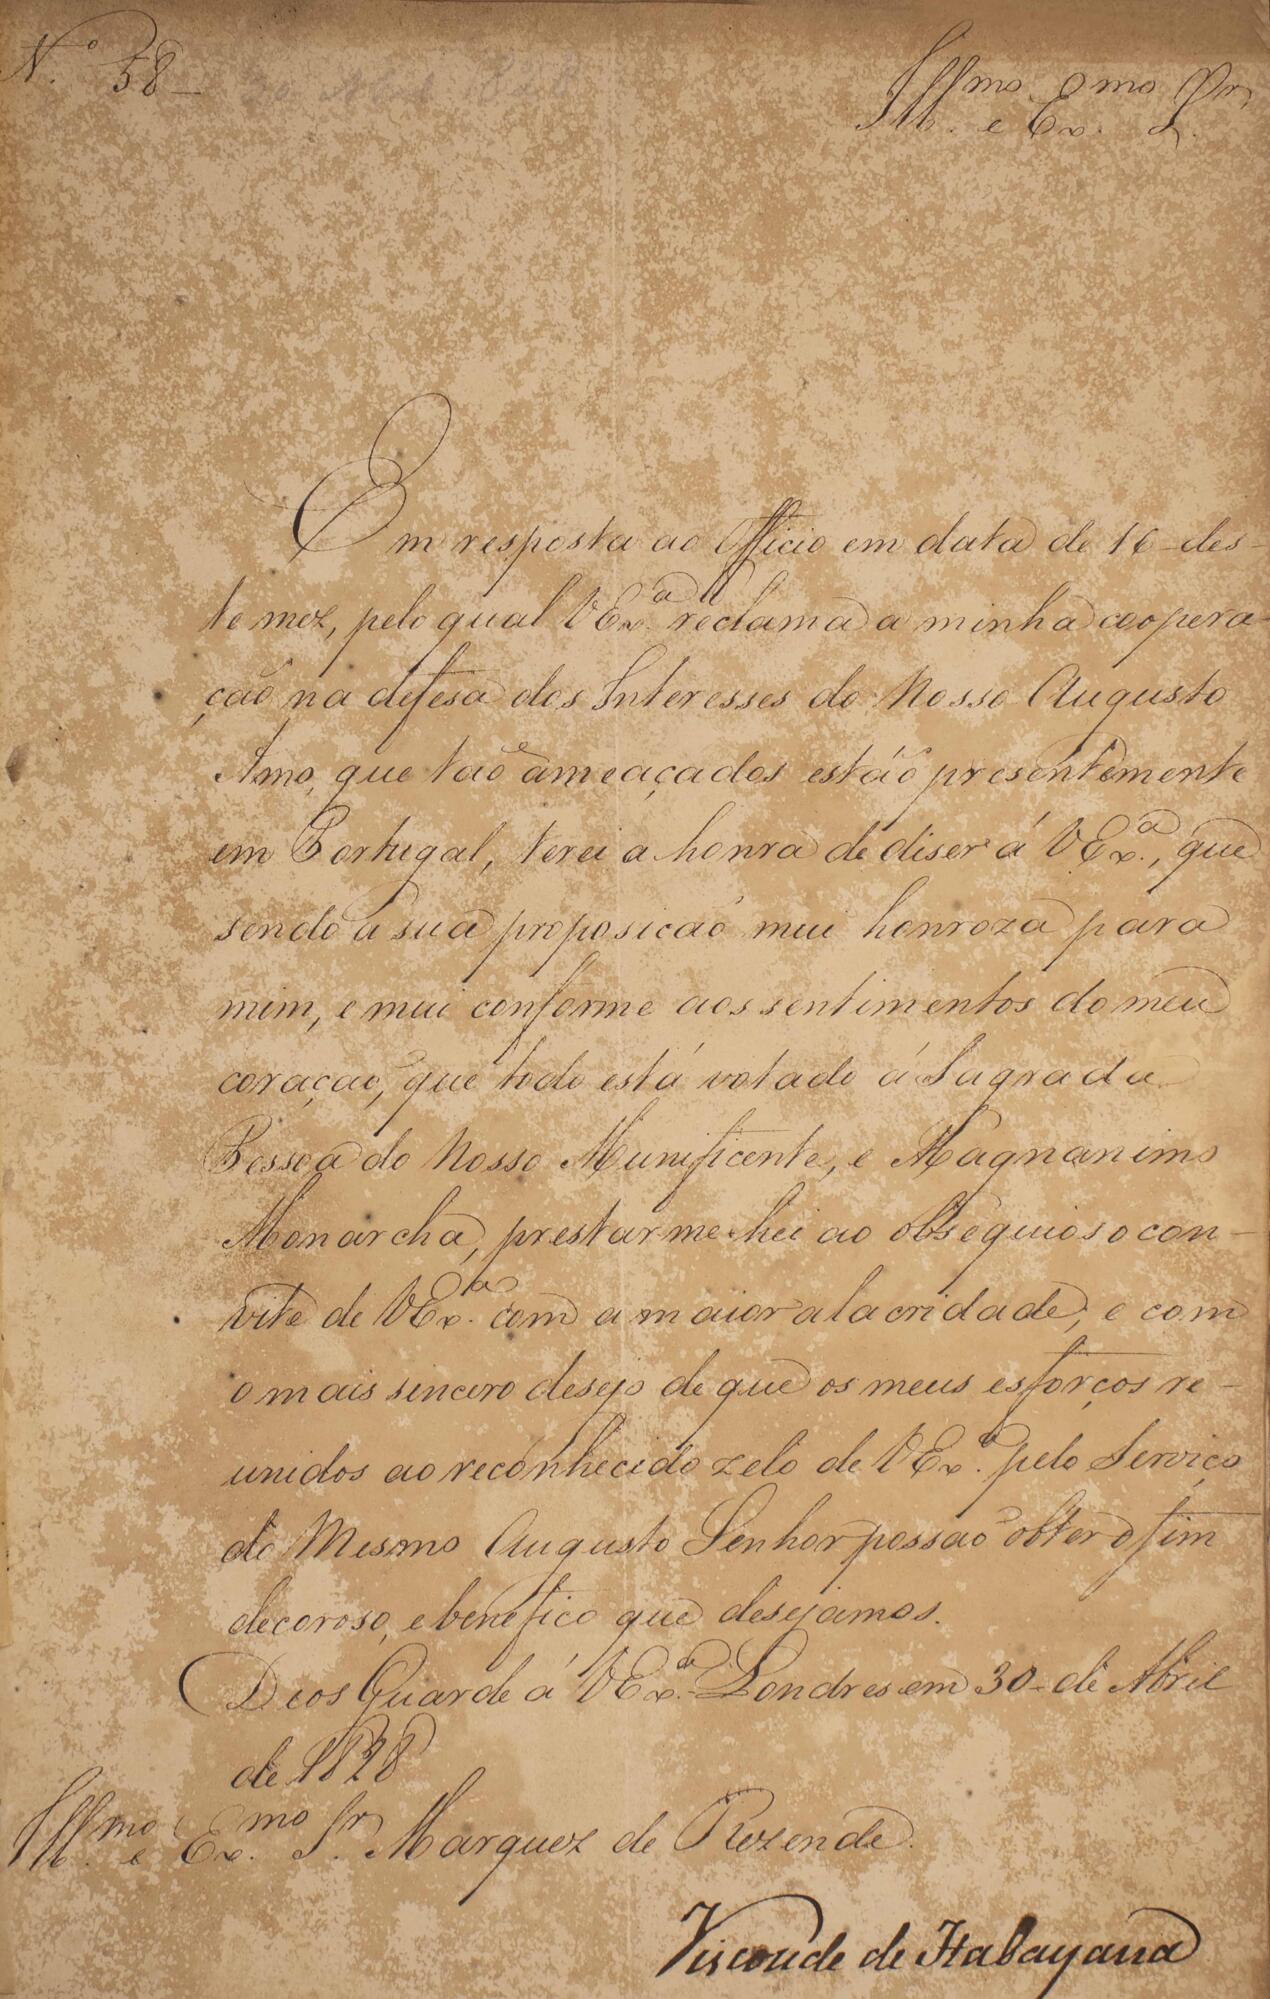 N.º 58_
Ill.mo e Ex.mo Sr.
Em resposta ao Officio em data de 16 des-
te mez, pelo qual VEx.ª reclama a minha coopera-
ção na defesa dos Interesses do Nosso Augusto
Amo, que tão ameaçados estão presentemente
em Portugal, terei a honra de diser á VEx.ª, que
sendo a sua proposição mui honroza para
mim, e mui conforme aos sentimentos do meu
coração, que todo está votado á Sagrada
Pessoa do Nosso Munificente, e Magnanimo
Monarcha, prestar-me-hei ao obsequioso con-
vite de VEx.ª com a maior alacridade, e com
o mais sincero desejo de que os meus esforços re-
unidos ao reconhecido zelo de VEx.ª pelo Serviço
do Mesmo Augusto Senhor possão obter o fim
decoroso, e benefico que desejamos.
Deos Guarde á VEx.ª Londres em 30 de Abril
de 1828
Ill.mo e Ex.mo Sr. Marquez de Rezende.
Visconde de Itabayana